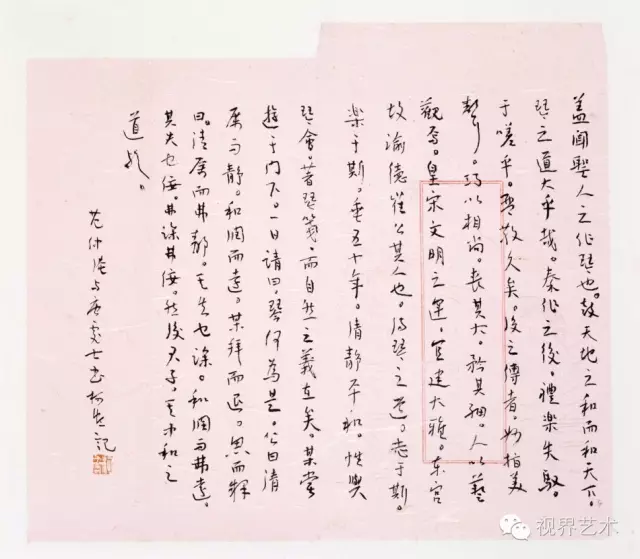 盖闻聖人之作琴也。鼓天地之和而和天下。
琴之道大乎哉。秦作之後。禮樂失馭。
于嗟乎。琴散久矣。後之傳者。妙指美
聲。巧以相尚。丧其大。矜其細。人以藝
觀焉。皇宋文明之運。宜建大雅。東宫
故谕德崔公其人也。得琴之道。志于斯。
樂于斯。垂五十年。清静平和。性與
琴會。著琴箋。而自然之義在矣。某尝
遊于門下。一日請曰。琴何為是。公曰清
厲而静。和润而遠。某拜而退。思而釋
曰。清厲而弗静。其失也躁。和润而弗遠。
其失也佞。弗躁弗佞。然後君子。其中和之
道欤。
范仲淹与唐處士書 記
视界艺术